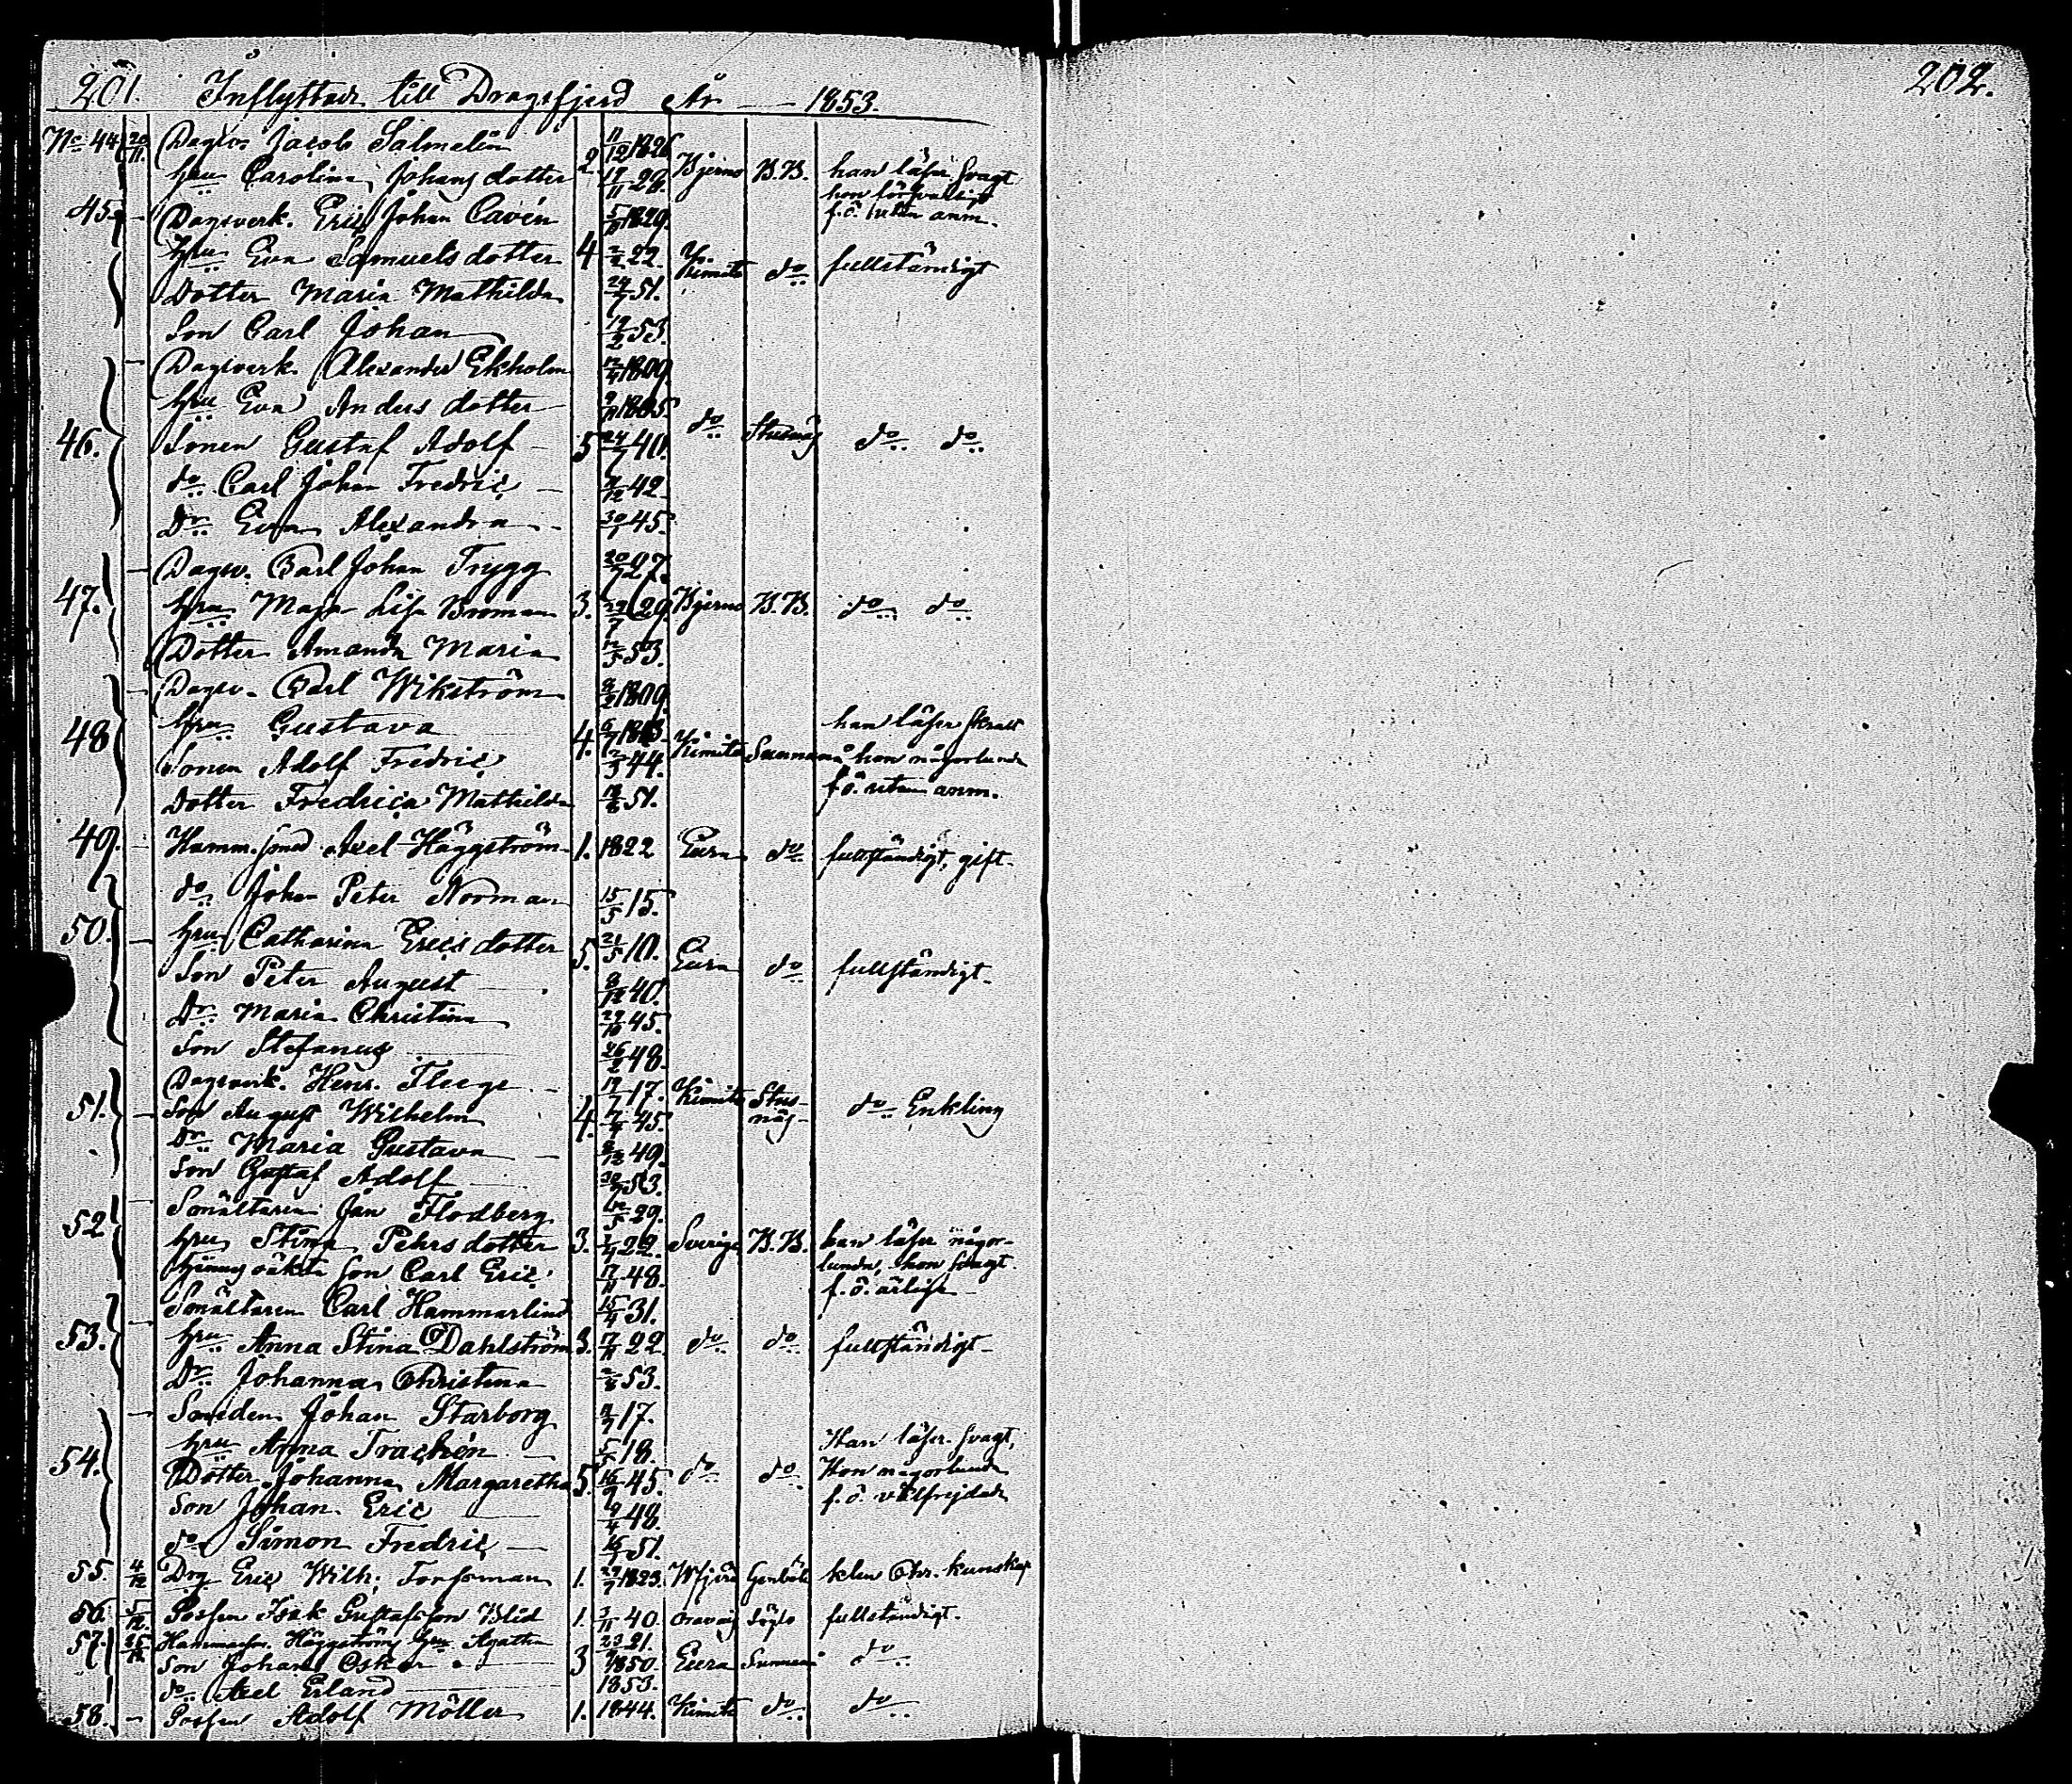 201. Inflyttade till Dragsfjerd År — 1853.
202.
No 44 20/11 Dagsv. Jacob Salmelin 2 11/12 1826
hru Carolina Johans dotter 28. Bjerno B.B. han läser svagt
hon försvarligt
45. — Dagsverk. Eric Johan Cavén 1829. f.ö. utan anm.
Hru Eva Samuels dotter 4 22. Kimito do fullständigt
Dotter Maria Mathilda 24/7 51.
Son Carl Johan 53.
— Dagsverk. Alexander Ekholm 1809.
hru Eva Anders dotter 1805
46. Sonen Gustaf Adolf — 5 24/7 40. do do do
do Carl Johan Fredric — 42
Dr Eva Alexandra 45.
— Dagsv. Carl Johan Trygg 20/7 27.
47. hru Maja Lisa Broman 3. 29. Bjerno B.B. do do
Dotter Amanda Maria 12/5 53.
— Dagsv. Carl Wikström 1809.
48 hru Gustava 4. 1813. Kimito Sunnanå han läser svalt
Sonen Adolf Fredric 44. hon någorlunda
Dotter Fredrica Mathilda 51. f.ö. utan anm.
49. Hamm.smed Axel Häggström 1. 1822 Eura do fullständigt, gift.
do Johan Peter Norman 15/5 15.
50. — hru Catharina Erics dotter 5. 21/5 10. Eura do fullständigt.
Son Peter August 8/12 40.
Dr Maria Christina 29/10 45.
Son Stefanus 26/2 48.
Dagsverk. Henr. Fleege 17. Kimito Stus-
51. — Son August Wilhelm 4. 45. näs do Enkling
Dr Maria Gustava — 49.
Son Gustaf Adolf 53.
— Smältaren Jan Flodberg 29.
52 hru Stina Pehrs dotter 3. 22. Sverige B.B. han läser någor-
hennes oäkta son Carl Eric 17/11 48. lunda, hon svagt.
Smältaren Carl Hammarlind 15/4 31. f.ö. ärlige
53. — hru Anna Stina Dahlström 3. 17/11 22 do do fullständigt
Dr Johanna Christina 53.
— Smeden Johan Starborg 17.
hru Anna Trachén 18. Han läser svagt,
54. Dotter Johanna Margaretha 5. 16/9 45. do do Hon någorlunda
Son Johan Eric 9/4 48. f.ö. välfrejdade
do Simon Fredric — 51.
55. 4/12 Drg Eric Wilh. Forssman 1. 1823. Genböle klen Chr. kunskap
56. 5/12. Gossen Isak Gustafsson Blid 1. 40. fullständigt.
57. Hammarsm. Häggströms hru Agatha 21.
Son Johan Oskar 3 1850. Eura Sunnanå do
do Axel Erland 1853.
58. — Gossen Adolf Möller 1. 1844. Kimito do do